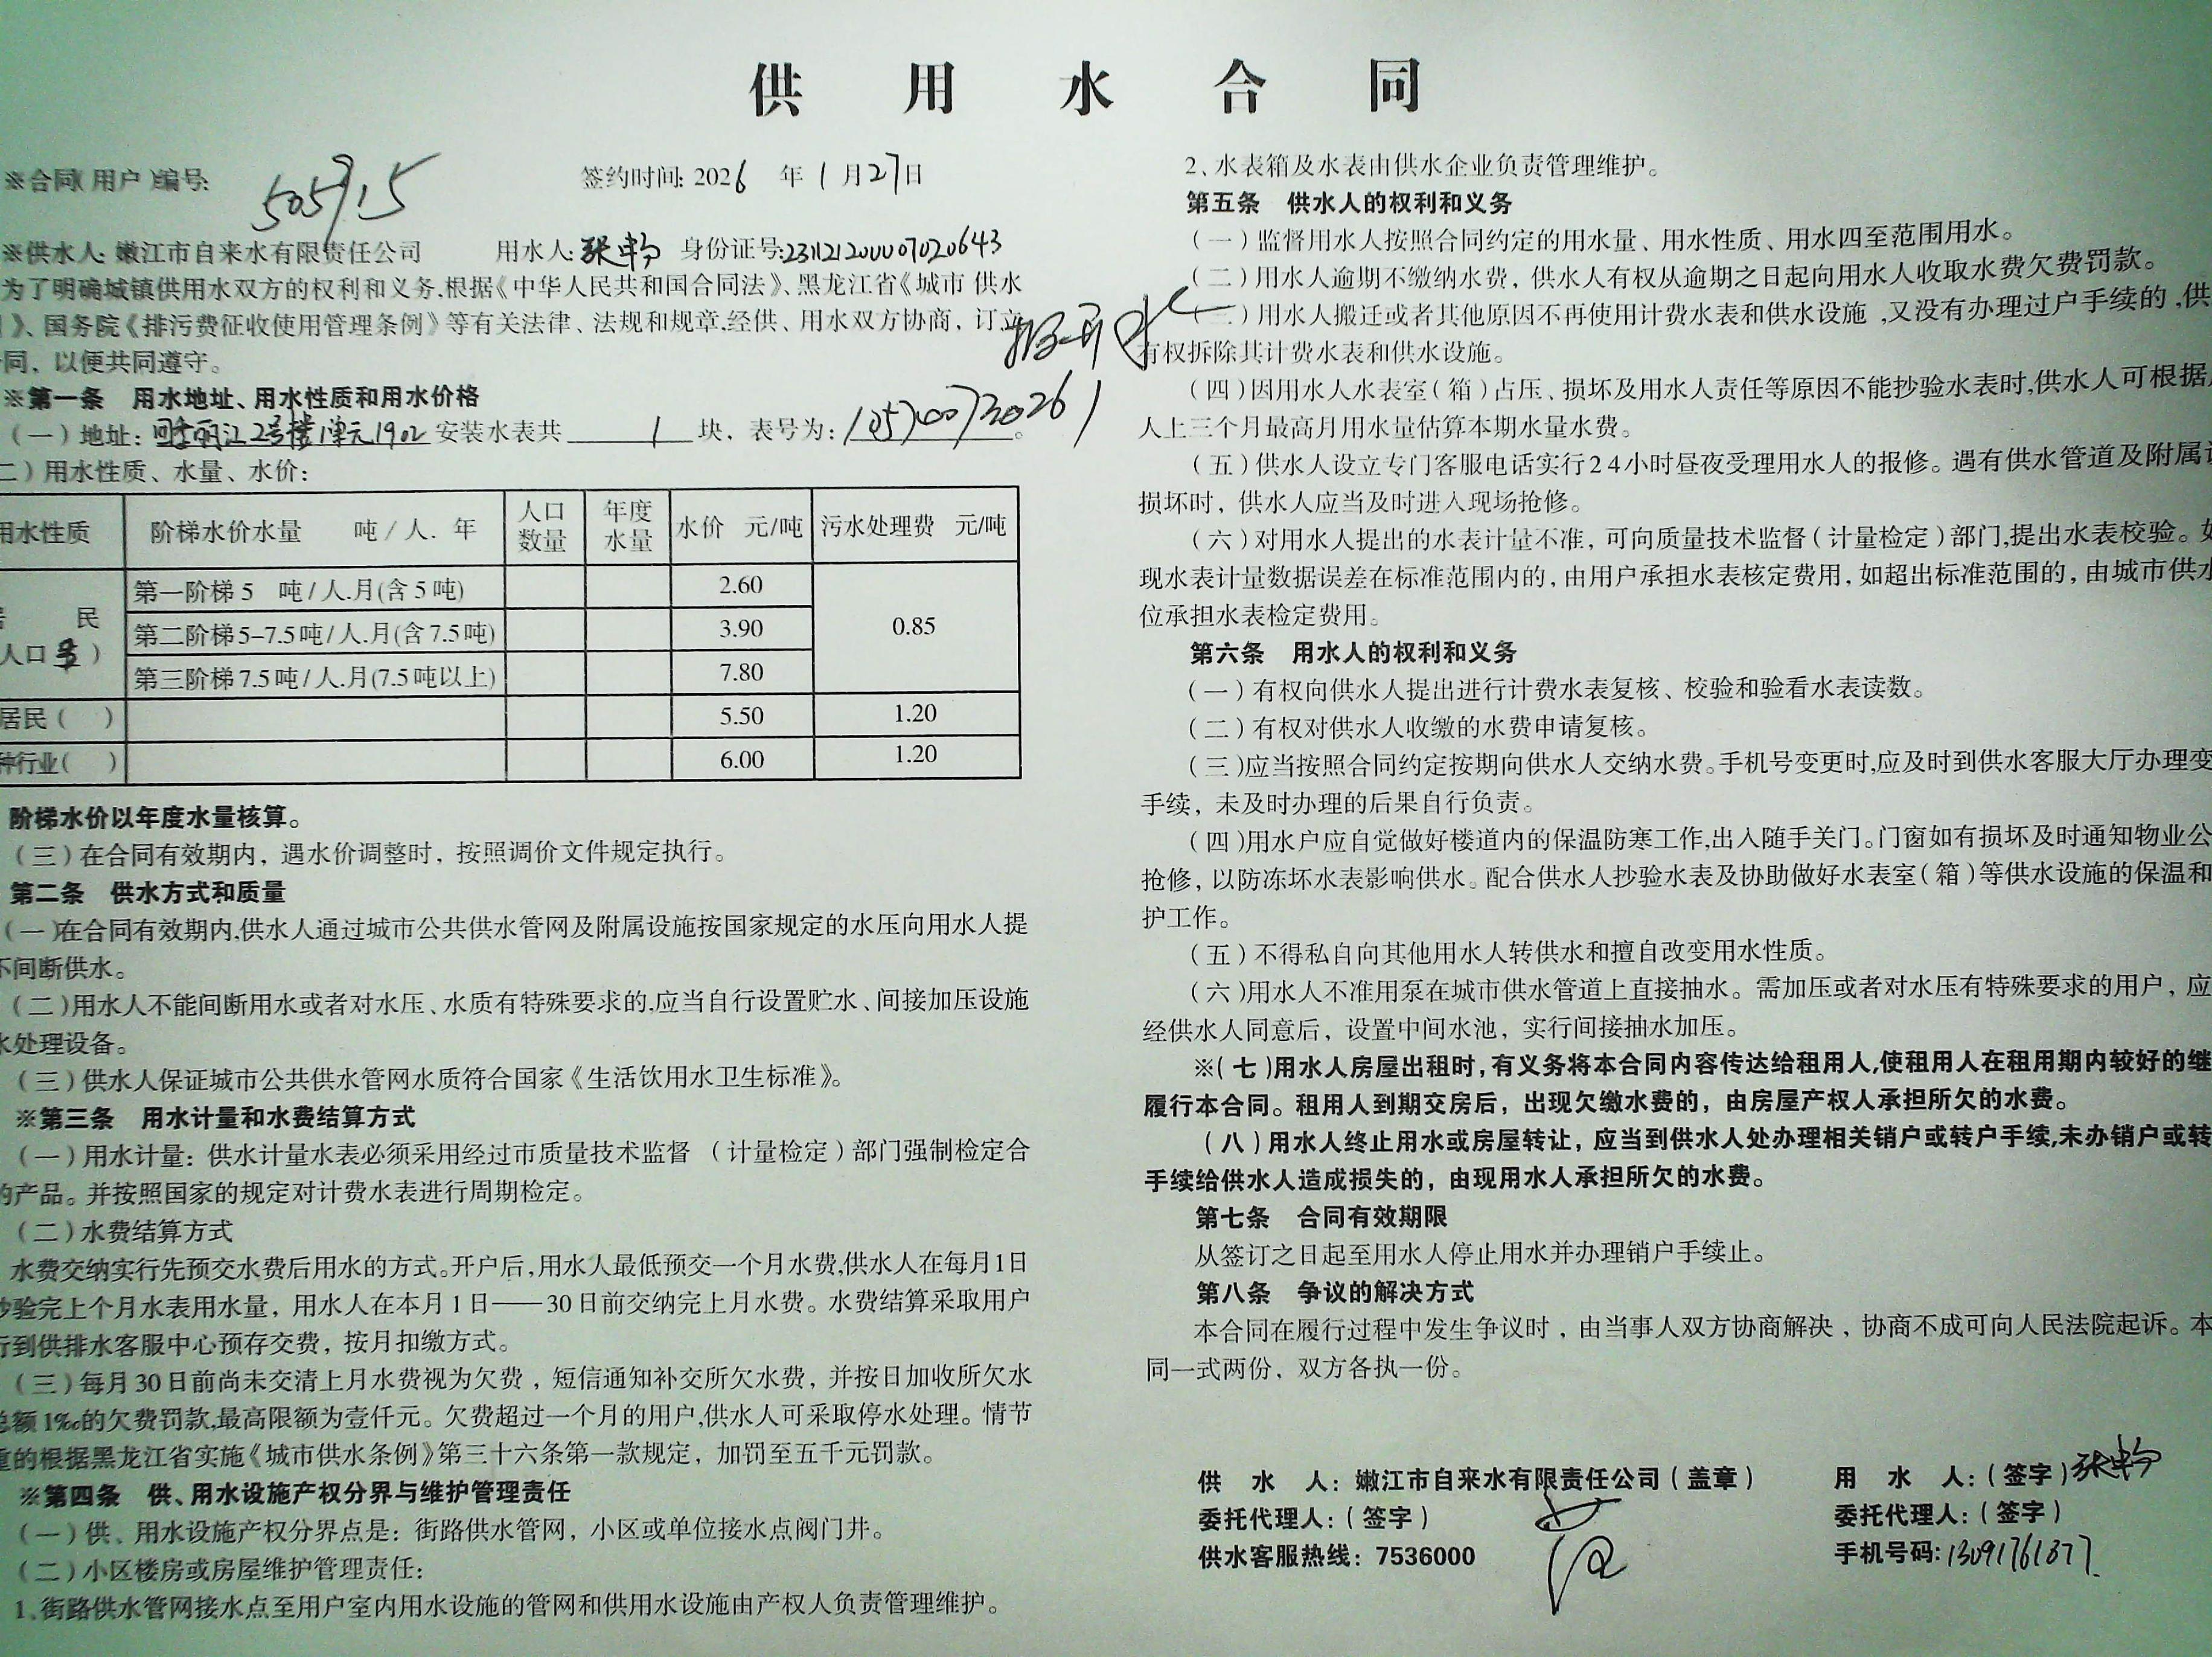 供用水合同
※合同(用户)编号: 505915
签约时间: 2026 年 1 月 27 日
※供水人: 嫩江市自来水有限责任公司 用水人: 张 身份证号:
为了明确城镇供用水双方的权利和义务,根据《中华人民共和国合同法》、黑龙江省《城市 供水
》、国务院《排污费征收使用管理条例》等有关法律、法规和规章,经供、用水双方协商，订立
同，以便共同遵守。
※第一条 用水地址、用水性质和用水价格
(一)地址: 丽江2号楼1单元1902 安装水表共 1 块，表号为:
二)用水性质、水量、水价:
用水性质 阶梯水价水量 吨/人. 年 人口数量 年度水量 水价 元/吨 污水处理费 元/吨
民
人口 )
第一阶梯 5 吨/人.月(含 5 吨) 2.60 0.85
第二阶梯 5-7.5 吨/人.月(含 7.5 吨) 3.90
第三阶梯 7.5 吨/人.月(7.5 吨以上) 7.80
居民( ) 5.50 1.20
种行业( ) 6.00 1.20
阶梯水价以年度水量核算。
(三)在合同有效期内，遇水价调整时，按照调价文件规定执行。
第二条 供水方式和质量
(一)在合同有效期内,供水人通过城市公共供水管网及附属设施按国家规定的水压向用水人提
不间断供水。
(二)用水人不能间断用水或者对水压、水质有特殊要求的,应当自行设置贮水、间接加压设施
水处理设备。
(三)供水人保证城市公共供水管网水质符合国家《生活饮用水卫生标准》。
※第三条 用水计量和水费结算方式
(一)用水计量: 供水计量水表必须采用经过市质量技术监督 (计量检定)部门强制检定合
的产品。并按照国家的规定对计费水表进行周期检定。
(二)水费结算方式
水费交纳实行先预交水费后用水的方式。开户后,用水人最低预交一个月水费,供水人在每月1日
抄验完上个月水表用水量，用水人在本月 1 日——30 日前交纳完上月水费。水费结算采取用户
行到供排水客服中心预存交费，按月扣缴方式。
(三)每月 30 日前尚未交清上月水费视为欠费，短信通知补交所欠水费，并按日加收所欠水
总额 1‰的欠费罚款,最高限额为壹仟元。欠费超过一个月的用户,供水人可采取停水处理。情节
重的根据黑龙江省实施《城市供水条例》第三十六条第一款规定，加罚至五千元罚款。
※第四条 供、用水设施产权分界与维护管理责任
(一)供、用水设施产权分界点是: 街路供水管网，小区或单位接水点阀门井。
(二)小区楼房或房屋维护管理责任:
1、街路供水管网接水点至用户室内用水设施的管网和供用水设施由产权人负责管理维护。
2、水表箱及水表由供水企业负责管理维护。
第五条 供水人的权利和义务
(一)监督用水人按照合同约定的用水量、用水性质、用水四至范围用水。
(二)用水人逾期不缴纳水费，供水人有权从逾期之日起向用水人收取水费欠费罚款。
(三)用水人搬迁或者其他原因不再使用计费水表和供水设施 ,又没有办理过户手续的 ,供
有权拆除其计费水表和供水设施。
(四)因用水人水表室(箱)占压、损坏及用水人责任等原因不能抄验水表时,供水人可根据
人上三个月最高月用水量估算本期水量水费。
(五)供水人设立专门客服电话实行24小时昼夜受理用水人的报修。遇有供水管道及附属设
损坏时，供水人应当及时进入现场抢修。
(六)对用水人提出的水表计量不准，可向质量技术监督(计量检定)部门,提出水表校验。如
现水表计量数据误差在标准范围内的，由用户承担水表核定费用，如超出标准范围的，由城市供水
位承担水表检定费用。
第六条 用水人的权利和义务
(一)有权向供水人提出进行计费水表复核、校验和验看水表读数。
(二)有权对供水人收缴的水费申请复核。
(三)应当按照合同约定按期向供水人交纳水费。手机号变更时,应及时到供水客服大厅办理变
手续，未及时办理的后果自行负责。
(四)用水户应自觉做好楼道内的保温防寒工作,出入随手关门。门窗如有损坏及时通知物业公
抢修，以防冻坏水表影响供水。配合供水人抄验水表及协助做好水表室(箱)等供水设施的保温和
护工作。
(五)不得私自向其他用水人转供水和擅自改变用水性质。
(六)用水人不准用泵在城市供水管道上直接抽水。需加压或者对水压有特殊要求的用户，应
经供水人同意后，设置中间水池，实行间接抽水加压。
※(七)用水人房屋出租时,有义务将本合同内容传达给租用人,使租用人在租用期内较好的继
履行本合同。租用人到期交房后，出现欠缴水费的，由房屋产权人承担所欠的水费。
(八)用水人终止用水或房屋转让，应当到供水人处办理相关销户或转户手续,未办销户或转
手续给供水人造成损失的，由现用水人承担所欠的水费。
第七条 合同有效期限
从签订之日起至用水人停止用水并办理销户手续止。
第八条 争议的解决方式
本合同在履行过程中发生争议时，由当事人双方协商解决，协商不成可向人民法院起诉。本
同一式两份，双方各执一份。
供 水 人: 嫩江市自来水有限责任公司(盖章) 用 水 人:(签字) 张
委托代理人:(签字) 委托代理人:(签字)
供水客服热线: 7536000 手机号码: 13091761377